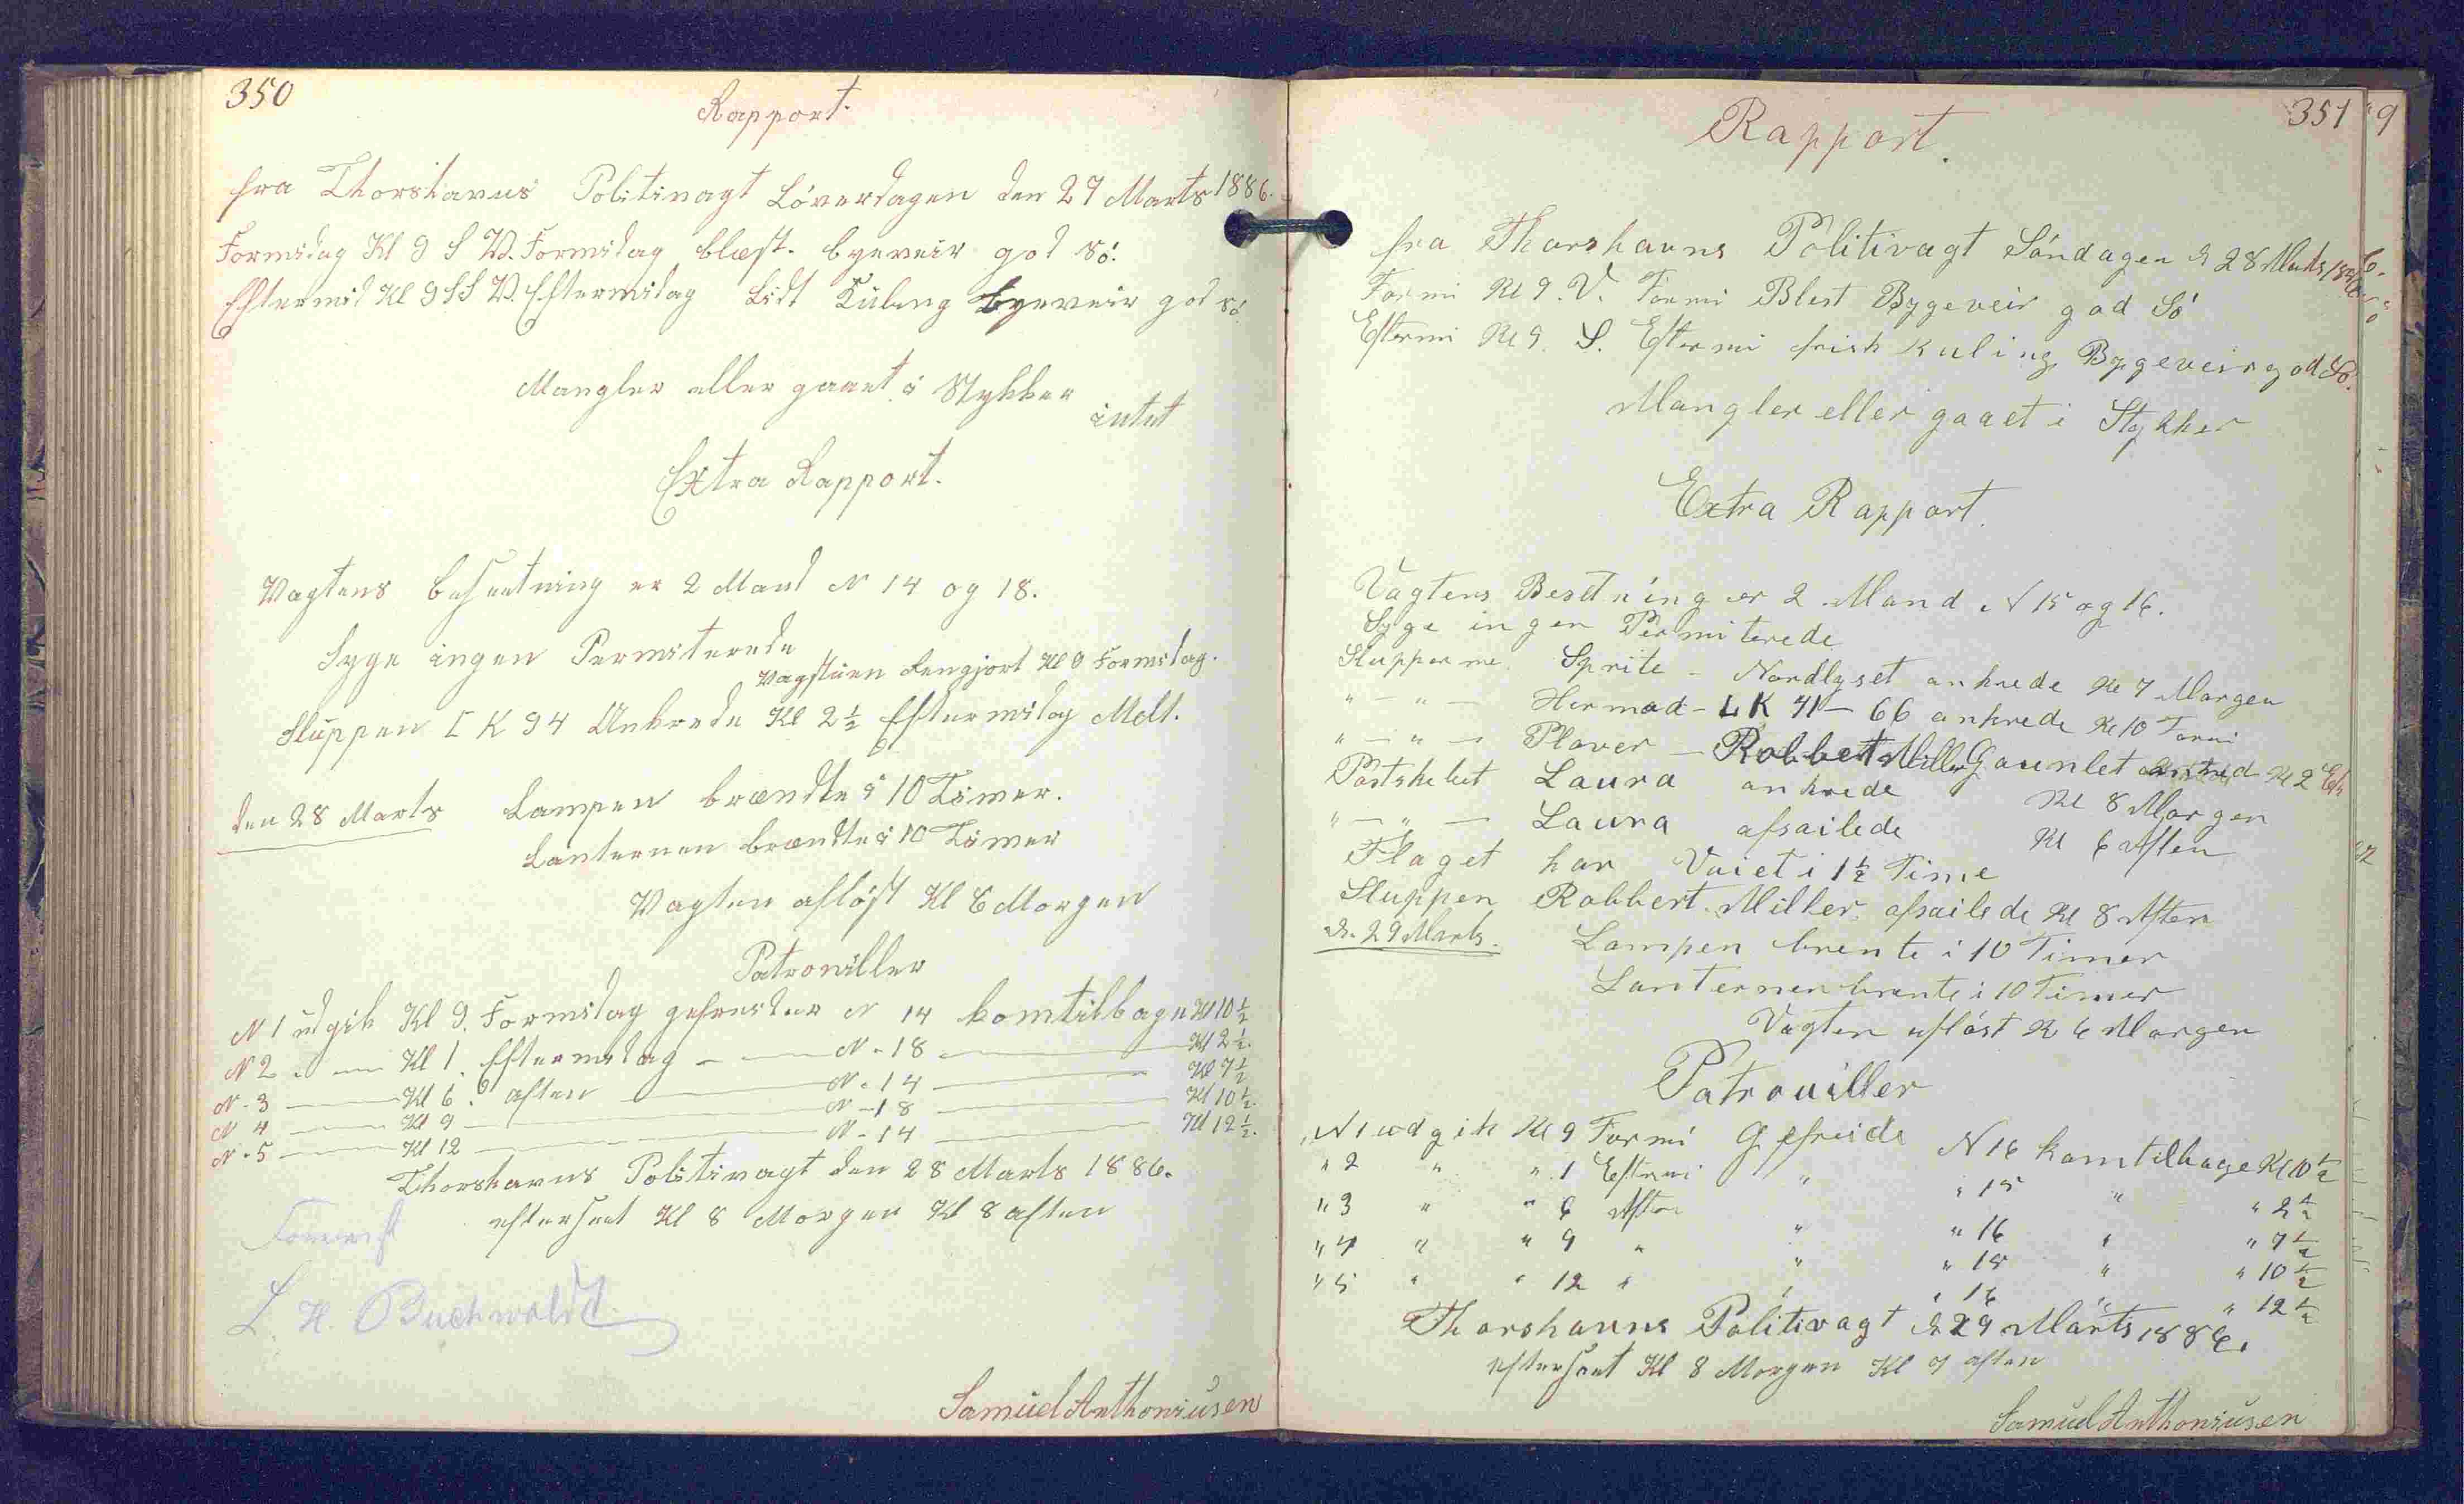 350
Rapport.
fra Thorshavns Politivagt Löverdagen den 27 Marts 1886.
Formidag Kl 9 S V. Formidag blæst. byeveir god Sö.
Eftermid Kl 9 SSV. Eftermidag Lidt Kuling byeveir god Sö.
Mangler eller gaaet i Stykker
intet
Extra Rapport.
Vagtens besætning er 2 Mand N 14 og 18.
Syge ingen Permiterede
Vagstuen Rengjort Kl 9 Formidag.
Sluppen L K 94 Ankrede Kl 2½ Eftermidag Mdt.
den 28 Marts Lampen brændte i 10 Timer.
Lanternen brændte i 10 Timer
Vagten aflöst Kl 6 Morgen
Patrouiller
N 1 udgik Kl 9. Formidag gefreider N 14 kom tilbage Kl 10½
N 2 " — Kl 1. Eftermidag — — N - 18 — Kl 2½.
N - 3 — Kl 6. aften — N - 14 — Kl 7½
N 4 — Kl 9 — N - 18 — Kl 10½.
N - 5 — Kl 12 — N - 14 — Kl 12½.
Thorshavns Politivagt den 28 Marts 1886.
efterseet Kl 8 Morgen Kl 8 aften
L. H. Buchwaldt.
Samuel Anthoniusen
351
9
Rapport.
fra Thorshavns Politivagt Söndagen d 28 Marts 1886.
Formi Kl 9. V. Formi Blest Bygeveir god Sö
Eftermi Kl 9. S. Eftermi frisk Kuling Bygeveir god Sö.
Mangler eller gaaet i Stykker
Extra Rapport.
Vagtens Besetning er 2 Mand N 15 og 16.
Syge ingen Permiterede
Slupperne Sprite - Nordlyset ankrede Kl 7 Morgen
" — " — Hermod - LK 71 - 66 ankrede Kl 10 Formi
" — " — Plover — Robbert Miller Gaunlet Kl 2 Eft
Postskibet Laura ankrede Kl 8 Morgen
" — " — Laura afsailede Kl 6 Aften
Flaget har Vaiet i 1½ Time
Sluppen Robbert Miller afsailede Kl 8 Aften
d. 29 Marts. Lampen brente i 10 Timer
Lanternen brente i 10 Timer
Vagten aflöst Kl 6 Morgen
Patrouiller
N 1 udgik Kl 9 Formi Gefreide N 16 kom tilbage Kl 10½
" 2 " " 1 Eftermi " " 15 " " 2½
" 3 " " 6 Aften " " 16 " " 7½
" 4 " " 9 " " " 15 " " 10½
" 5 " " 12 " " " 16 " " 12½
Thorshavns Politivagt d 29 Marts 1886.
efterseet Kl 8 Morgen Kl 7 aften
Samuel Anthoniusen